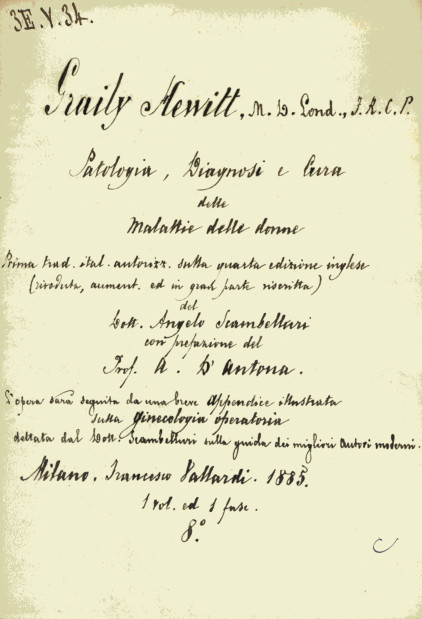 3E.V.34.
Graily Hewitt, M. D. Lond., F.R.C.P.
Patologia, Diagnosi e Cura
delle
Malattie delle donne
Prima trad. ital. autorizz. sulla quarta edizione inglese
(riveduta, aument. ed in gran parte riscritta)
del
Dott. Angelo Scambelluri
con prefazione del
Prof. A. D'Antona.
L'opera sarà seguita da una breve Appendice illustrata
sulla ginecologia operatoria
dettata dal Dott. Scambelluri sulla guida dei migliori autori moderni.
Milano. Francesco Vallardi. 1885.
1 vol. ed 1 fasc.
8.º